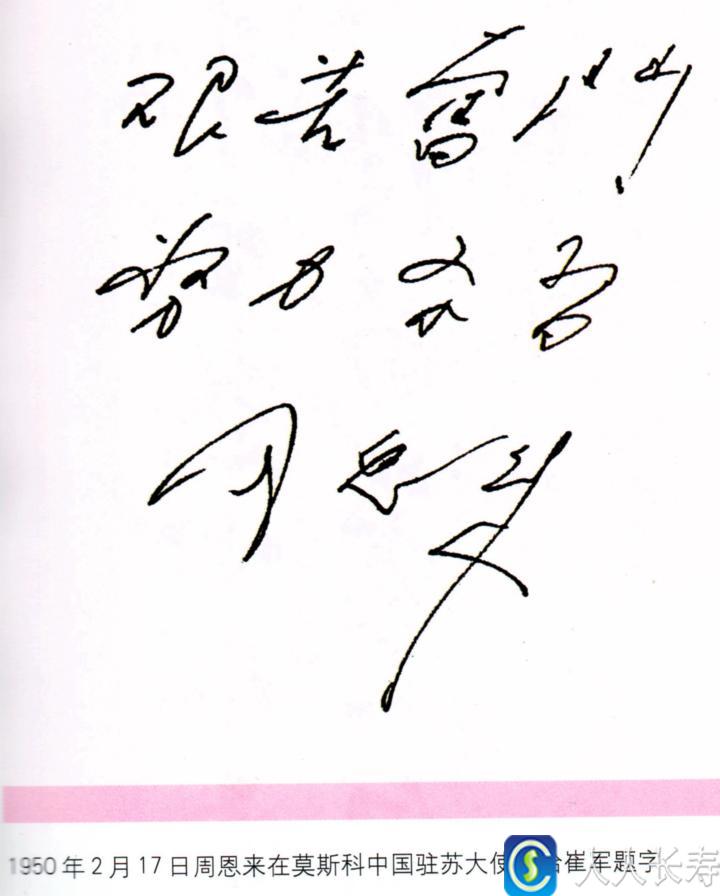 艰苦奮鬥
努力学習
周恩来
1950年2月17日周恩来在莫斯科中国驻苏大使 给崔军题字
人人长寿